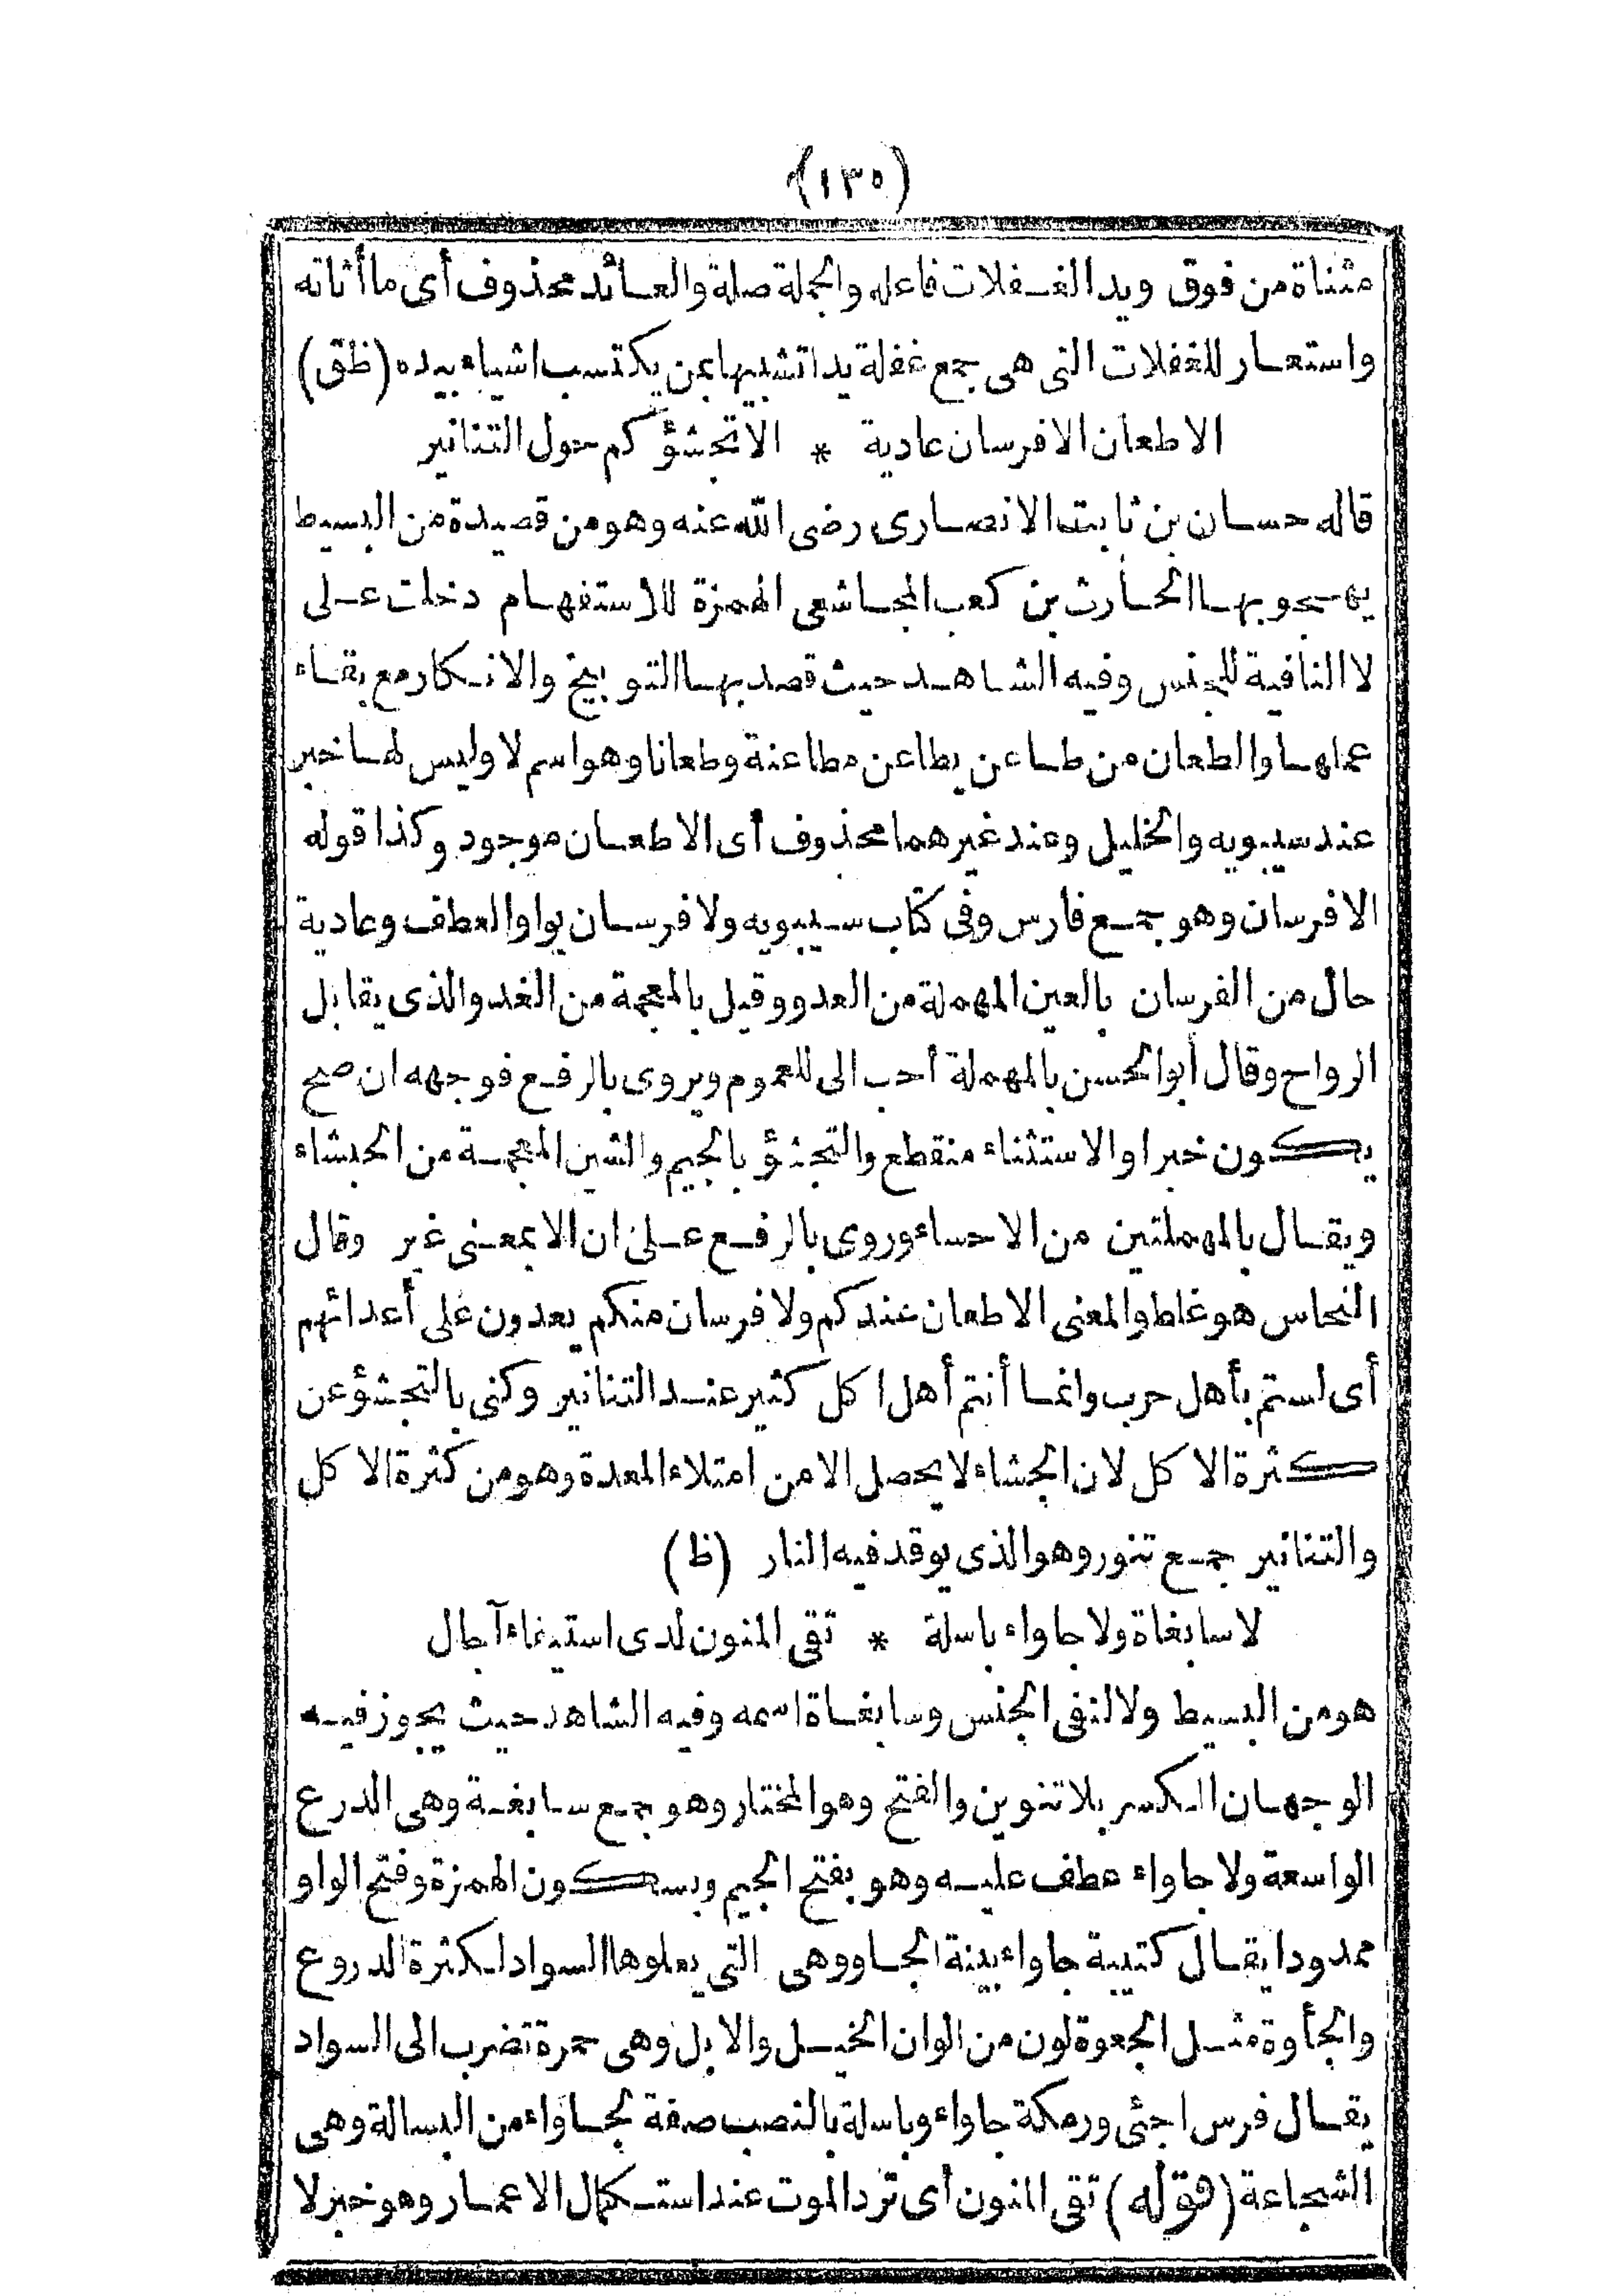 (١٣٥)
مثناة من فوق ويد الغفلات فاعله والجملة صلة والعائد محذوف أى ما أثاته
واستعار للغفلات التى هى جمع غفلة يدا تشبيها بمن يكتسب اشياء بيده (ظق)
الاطعان الافرسان عادية * الا تجشؤكم حول التنانير
قاله حسان بن ثابت الانصارى رضى الله عنه وهو من قصيدة من البسيط
يهجو بها الحارث بن كعب المجاشعى الهمزة للاستفهام دخلت على
لا النافية للجنس وفيه الشاهد حيث قصد بها التوبيخ والانكار مع بقاء
عملها والطعان من طاعن يطاعن مطاعنة وطعانا وهو اسم لا وليس لها خبر
عند سيبويه والخليل وعند غيرهما محذوف أى الاطعان موجود وكذا قوله
الافرسان وهو جمع فارس وفى كتاب سيبويه ولا فرسان بواو العطف وعادية
حال من الفرسان بالعين المهملة من العدو وقيل بالمعجمة من الغدو الذى يقابل
الرواح وقال أبو الحسن بالمهملة أحب الى للعموم ويروى بالرفع فوجهه ان صح
يكون خبرا والاستثناء منقطع والتجشؤ بالجيم والشين المعجمة من الجشاء
ويقال بالمهملتين من الاحساء وروى بالرفع على ان الا بمعنى غير وقال
النحاس هو غلط والمعنى الاطعان عندكم ولا فرسان منكم يعدون على أعدائهم
أى لستم بأهل حرب وانما أنتم أهل اكل كثير عند التنانير وكنى بالتجشؤ عن
كثرة الاكل لان الجشاء لا يحصل الا من امتلاء المعدة وهو من كثرة الاكل
والتنانير جمع تنور وهو الذى يوقد فيه النار (ظ)
لا سابغاة ولا جاواء باسلة * تقى المنون لدى استيفاء آجال
هو من البسيط ولا لنفى الجنس وسابغاة اسمه وفيه الشاهد حيث يجوز فيه
الوجهان الكسر بلا تنوين والفتح وهو المختار وهو جمع سابغة وهى الدرع
الواسعة ولا جاواء عطف عليه وهو بفتح الجيم وبسكون الهمزة وفتح الواو
ممدودا يقال كتيبة جاواء بينة الجاو وهى التى يعلوها السواد لكثرة الدروع
والجأوة مثل الجعوة لون من الوان الخيل والابل وهى حمرة تضرب الى السواد
يقال فرس اجئى ورمكة جاواء وباسلة بالنصب صفة لجاواء من البسالة وهى
الشجاعة (قوله) تقى المنون أى ترد الموت عند استكمال الاعمار وهو خبر لا